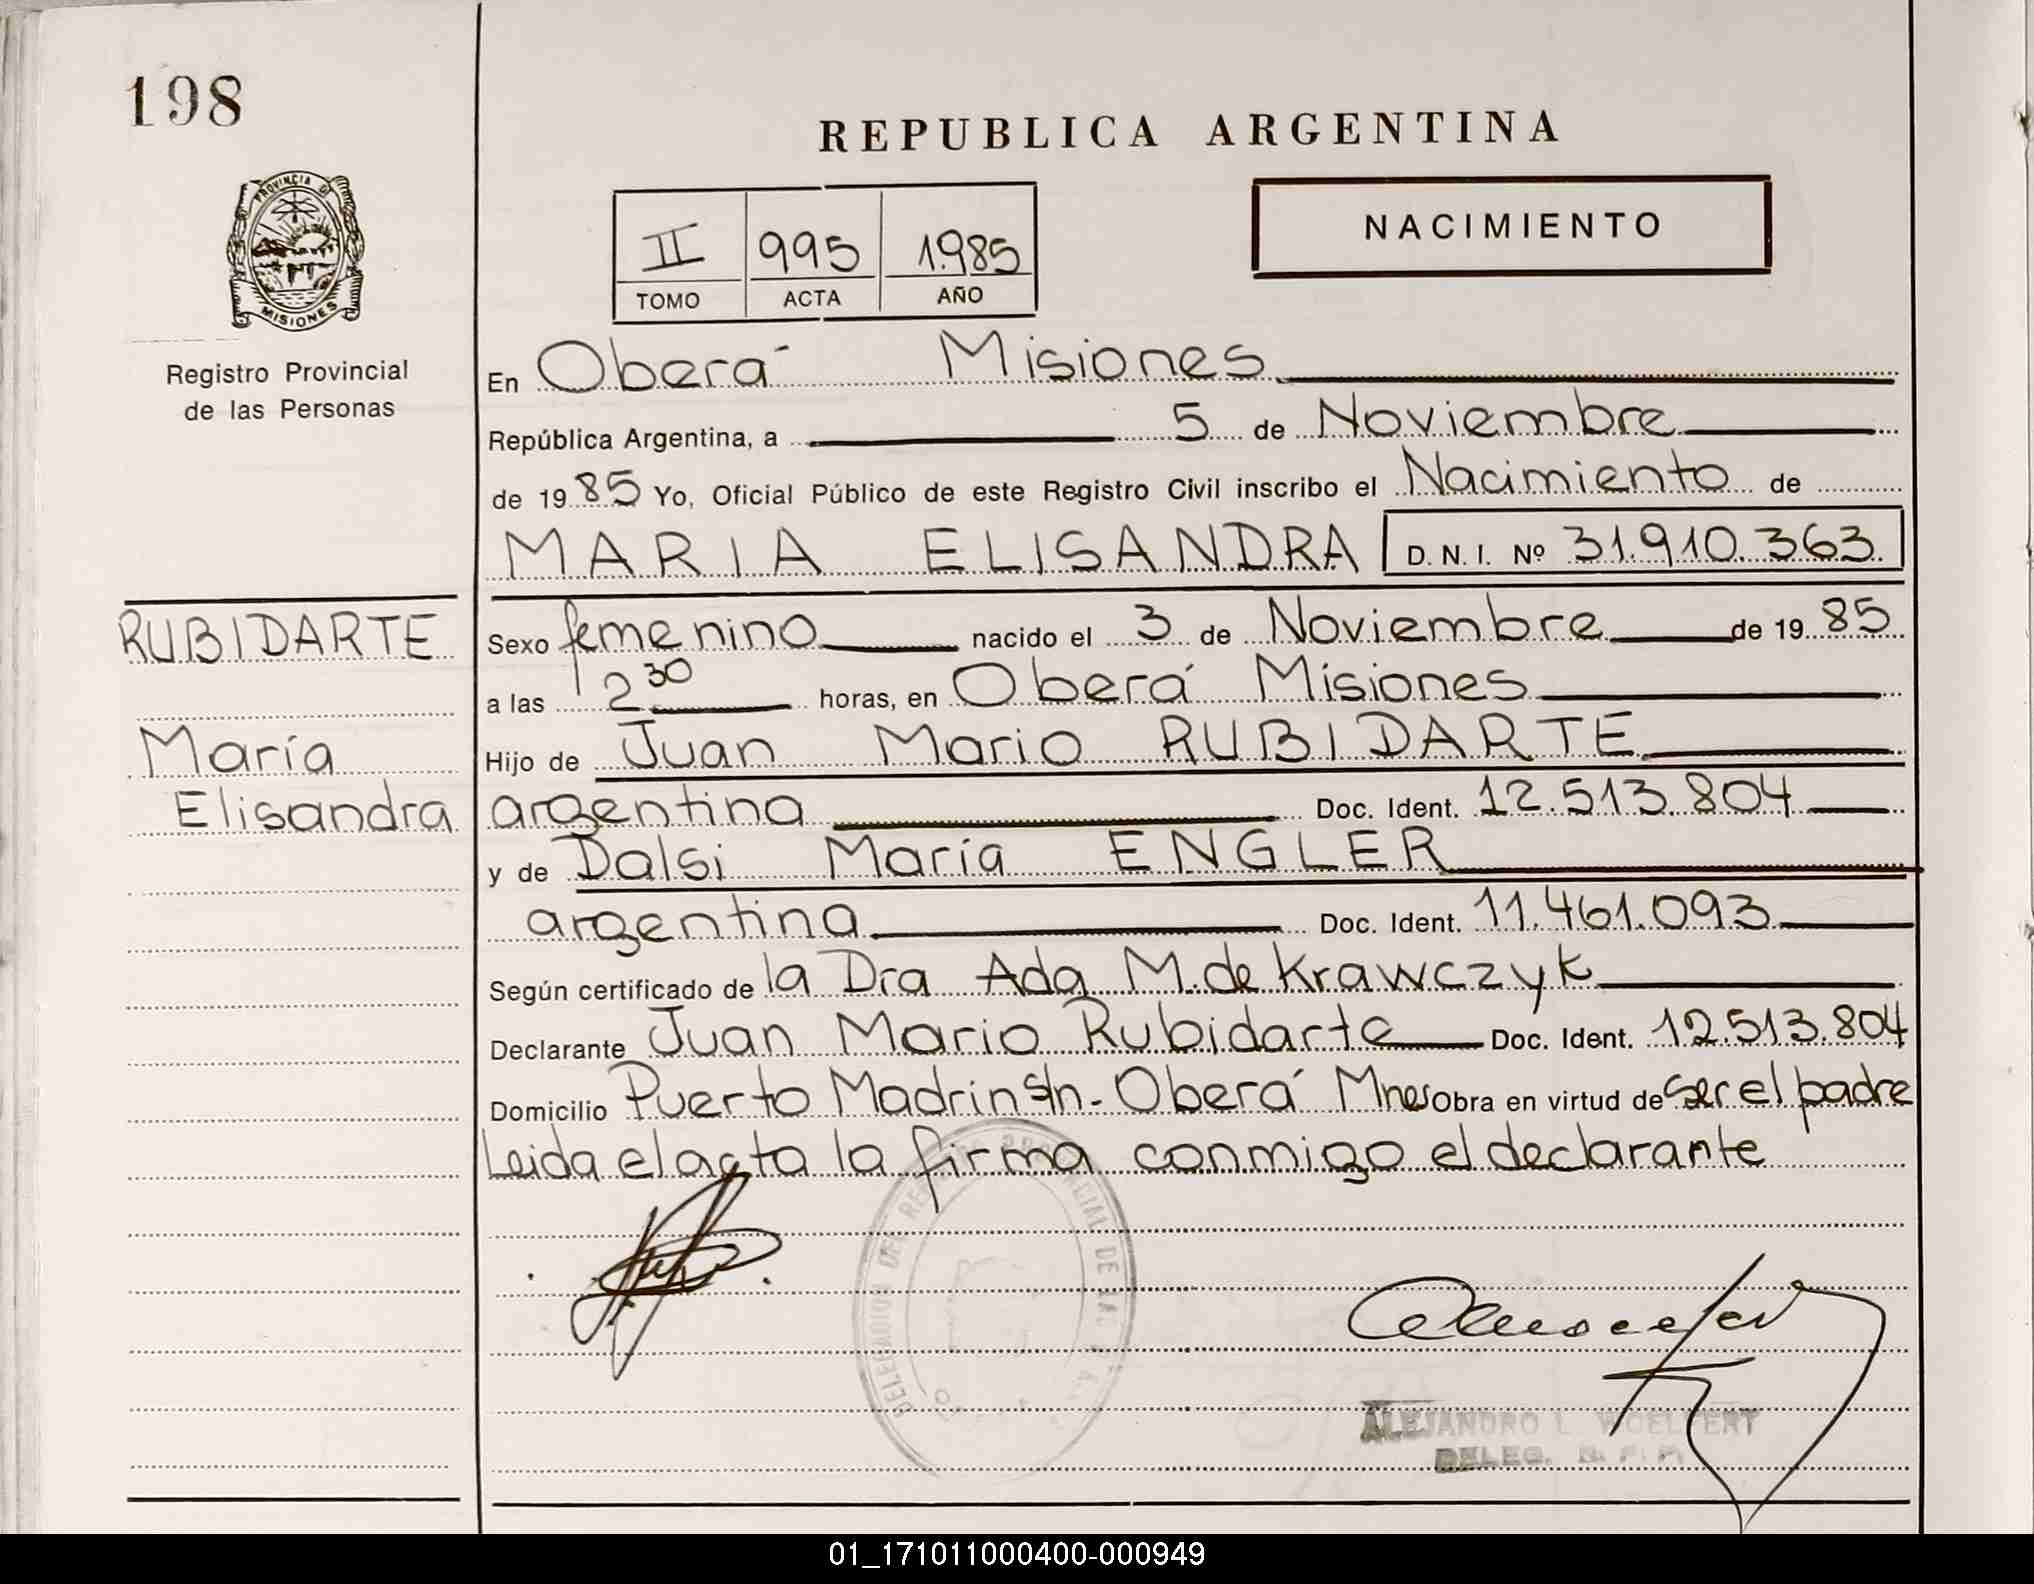 198
REPUBLICA ARGENTINA
NACIMIENTO
II 995 1.985
TOMO ACTA AÑO
PROVINCIA DE
MISIONES
Registro Provincial
de las Personas
En Oberá Misiones
República Argentina, a 5 de Noviembre
de 19 85 Yo, Oficial Público de este Registro Civil inscribo el Nacimiento de
MARIA ELISANDRA D. N. I. Nº 31.910.363
RUBIDARTE
María
Elisandra
Sexo femenino nacido el 3 de Noviembre de 19 85
a las 2 30 horas, en Oberá Misiones
Hijo de Juan Mario RUBIDARTE
argentino Doc. Ident. 12.513.804
y de Dalsi María ENGLER
argentina Doc. Ident. 11.461.093
Según certificado de la Dra Ada M. de Krawczyk
Declarante Juan Mario Rubidarte Doc. Ident. 12.513.804
Domicilio Puerto Madrin s/n - Oberá Mnes Obra en virtud de ser el padre
Leida el acta la firma conmigo el declarante
DELEGACION DEL PROVINCIAL DE LAS
ALEJANDRO L WOELFERT
DELEG. R. P. P.
01_171011000400-000949